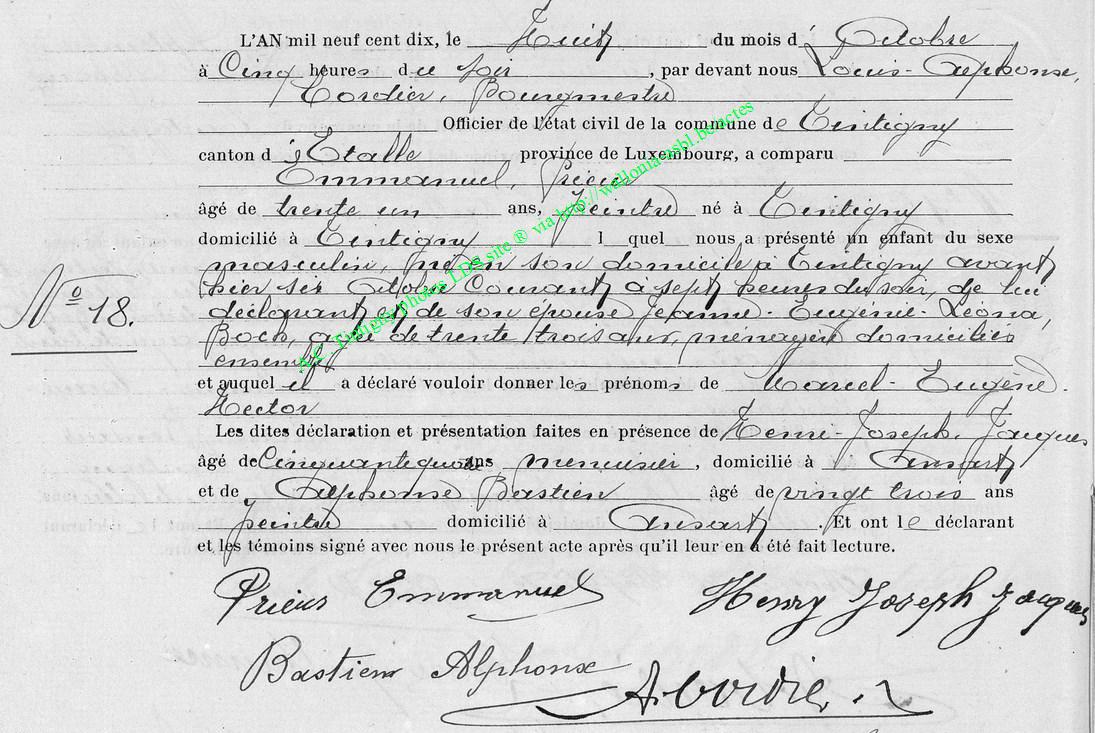 L'AN mil neuf cent dix, le Huit du mois d' Octobre
à Cinq heures du soir, par devant nous Louis-Alphonse,
Cordier, Bourgmestre
Officier de l'état civil de la commune de Tintigny
canton d'Etalle province de Luxembourg, a comparu
Emmanuel, Prieur
âgé de trente un ans, Peintre né à Tintigny
domicilié à Tintigny l quel nous a présenté un enfant du sexe
masculin, né en son domicile à Tintigny avant
hier six Octobre Courant, à sept heures du soir, de lui
N° 18.
déclarant et de son épouse Jeanne-Eugénie-Léona,
Bock, agée de trente trois ans, ménagère domiciliés
ensemble
et auquel il a déclaré vouloir donner les prénoms de Marcel-Eugène.
Hector
Les dites déclaration et présentation faites en présence de Henri-Joseph, Jacques
âgé de Cinquante ans menuisier, domicilié à Ansart
et de Alphonse Bastien âgé de vingt trois ans
peintre domicilié à Ansart. Et ont le déclarant
et les témoins signé avec nous le présent acte après qu'il leur en a été fait lecture.
Prieur Emmanuel Henry Joseph Jacques
Bastien Alphonse
A. Cordier
Tintigny photos LDS site ® via http://wallonia-asbl.be/actes